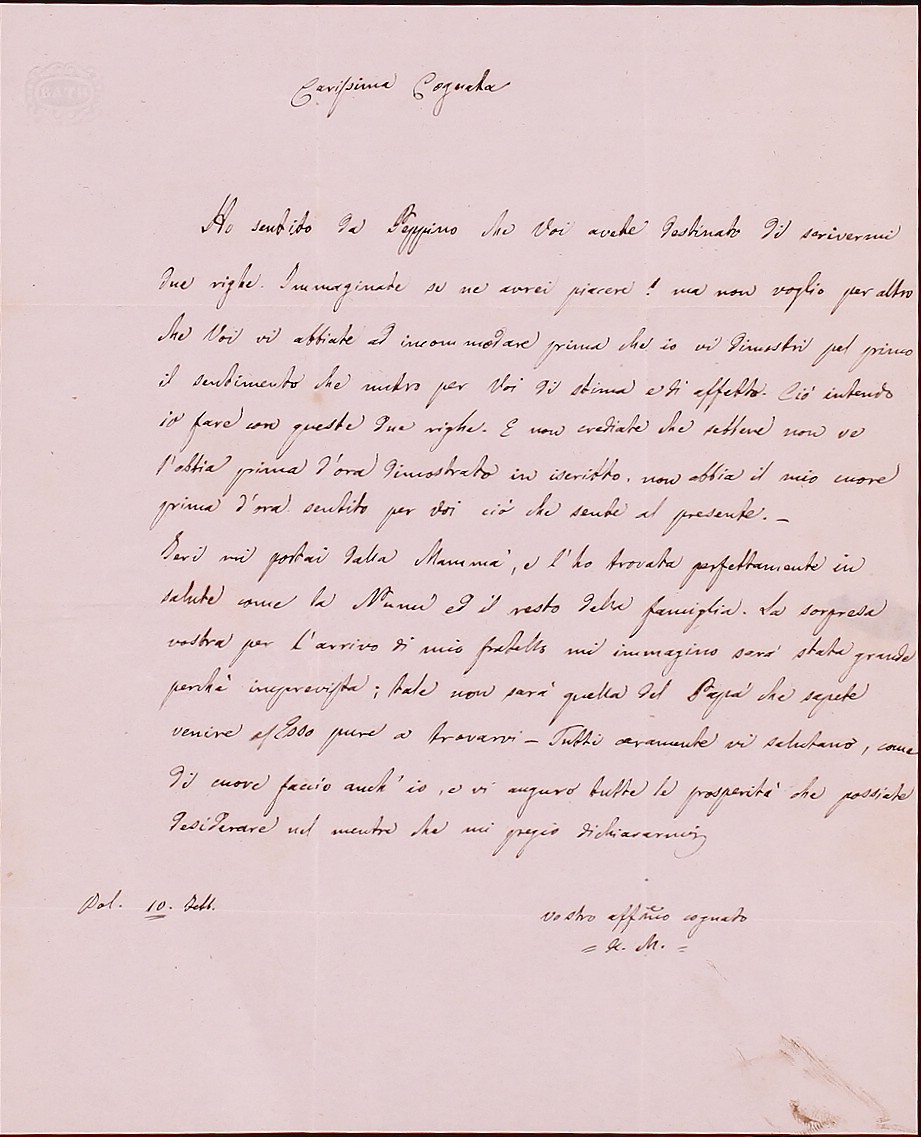 BATH
Carissima Cognata
Ho sentito da Peppino che Voi avete destinato di scrivermi
due righe. Immaginate se ne avrei piacere! ma non voglio per altro
che Voi vi abbiate ad incommodare prima che io vi dimostri pel primo
il sentimento che nutro per Voi di stima e di affetto. Ciò intendo
io fare con queste due righe. E non crediate che sebbene non ve
l'abbia prima d'ora dimostrato in iscritto, non abbia il mio cuore
prima d'ora sentito per Voi ciò che sente al presente. –
Ieri mi portai dalla Mammà, e l'ho trovata perfettamente in
salute come la Nunù ed il resto della famiglia. La sorpresa
vostra per l'arrivo di mio fratello mi immagino sarà stata grande
perchè imprevista; tale non sarà quella del Papà che sapete
venire Esso pure a trovarvi – Tutti caramente vi salutano, come
di cuore faccio anch'io, e vi auguro tutte le prosperità che possiate
desiderare nel mentre che mi pregio dichiararmi
10.
vostro affmo cognato
M.